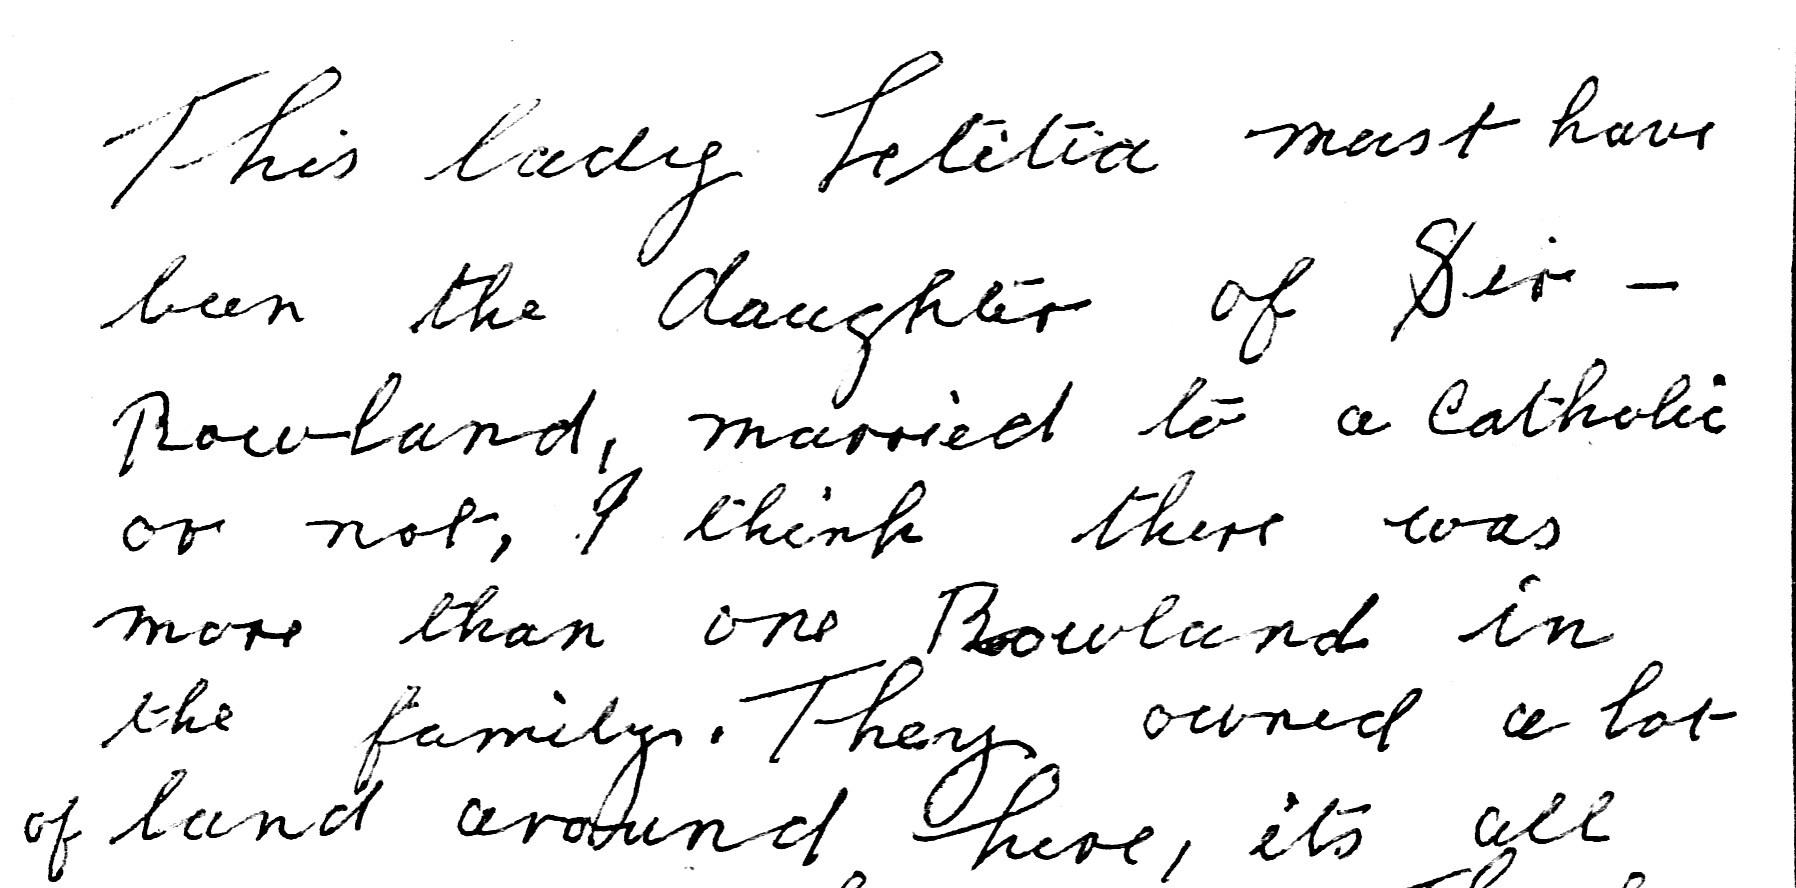 This lady Letitia must have
been the daughter of Sir -
Rowland, married to a Catholic
or not, I think there was
more than one Rowland in
the family. They owned a lot
of land around here, its all